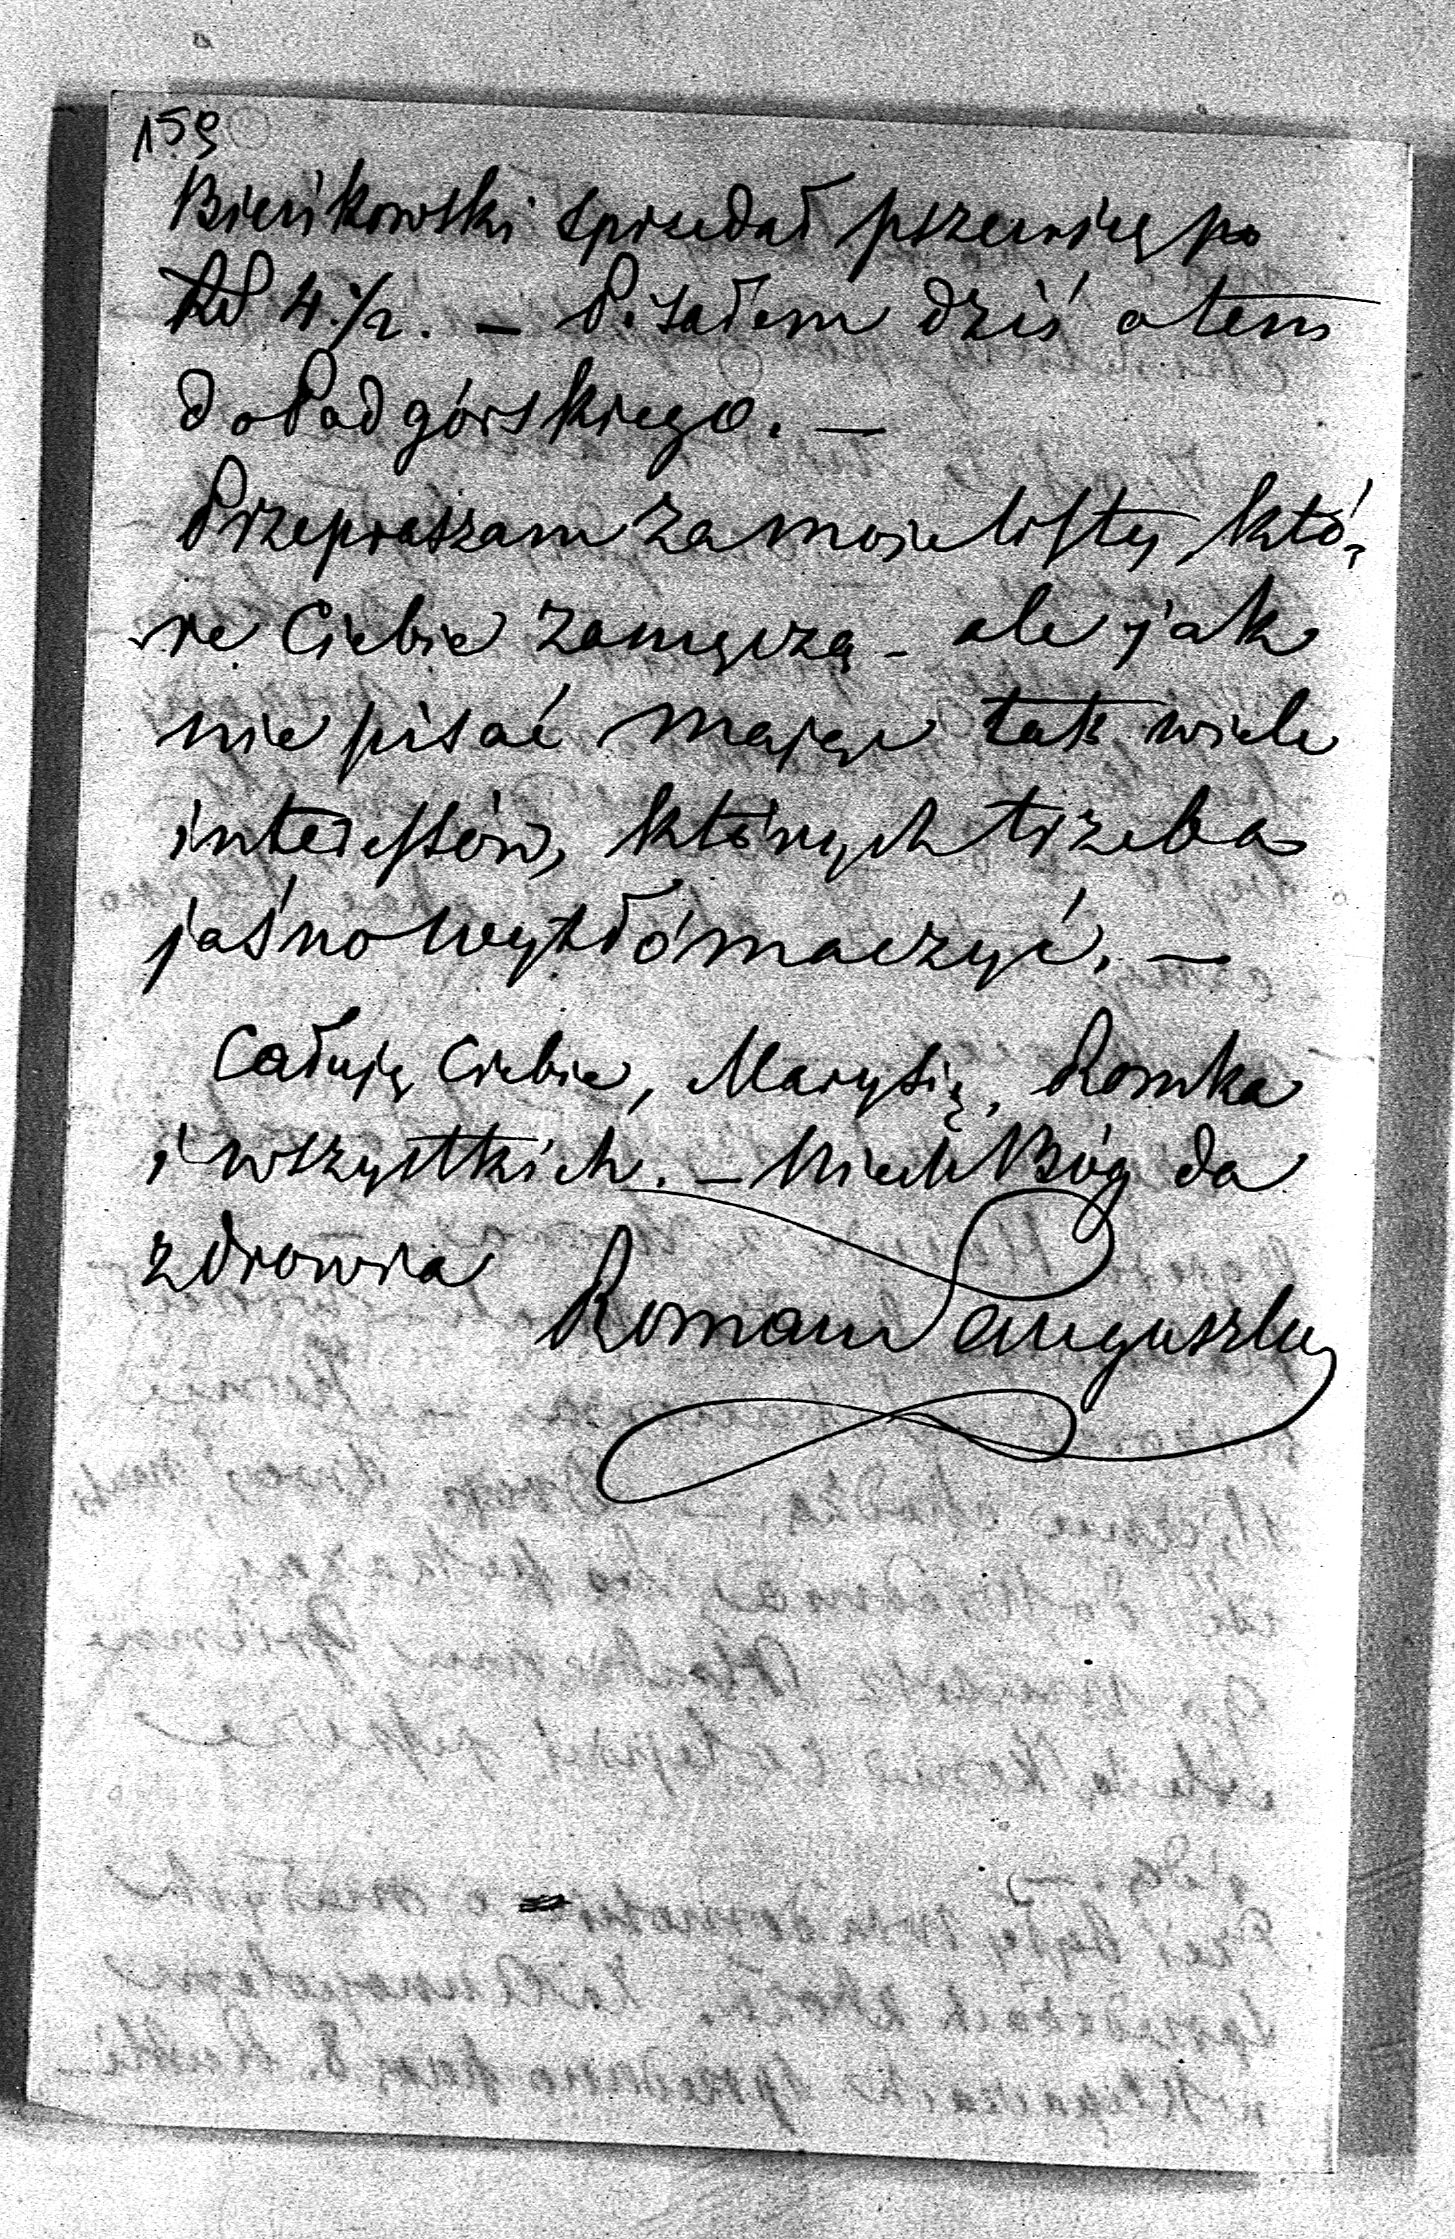 159
Bieńkowski sprzedał pszenicę po
Rb 4.½. – Pisałem dziś o tem
do Podgórskiego. –
Przepraszam za moje listy, któ-
re Ciebie zamęczą – ale jak
nie pisać mając tak wiele
interessów, których trzeba
jaśno wytłómaczyć. –
Całuję Ciebie, Marysię, Romka
i wszystkich. – Niech Bóg da
zdrowia
Roman Sanguszko